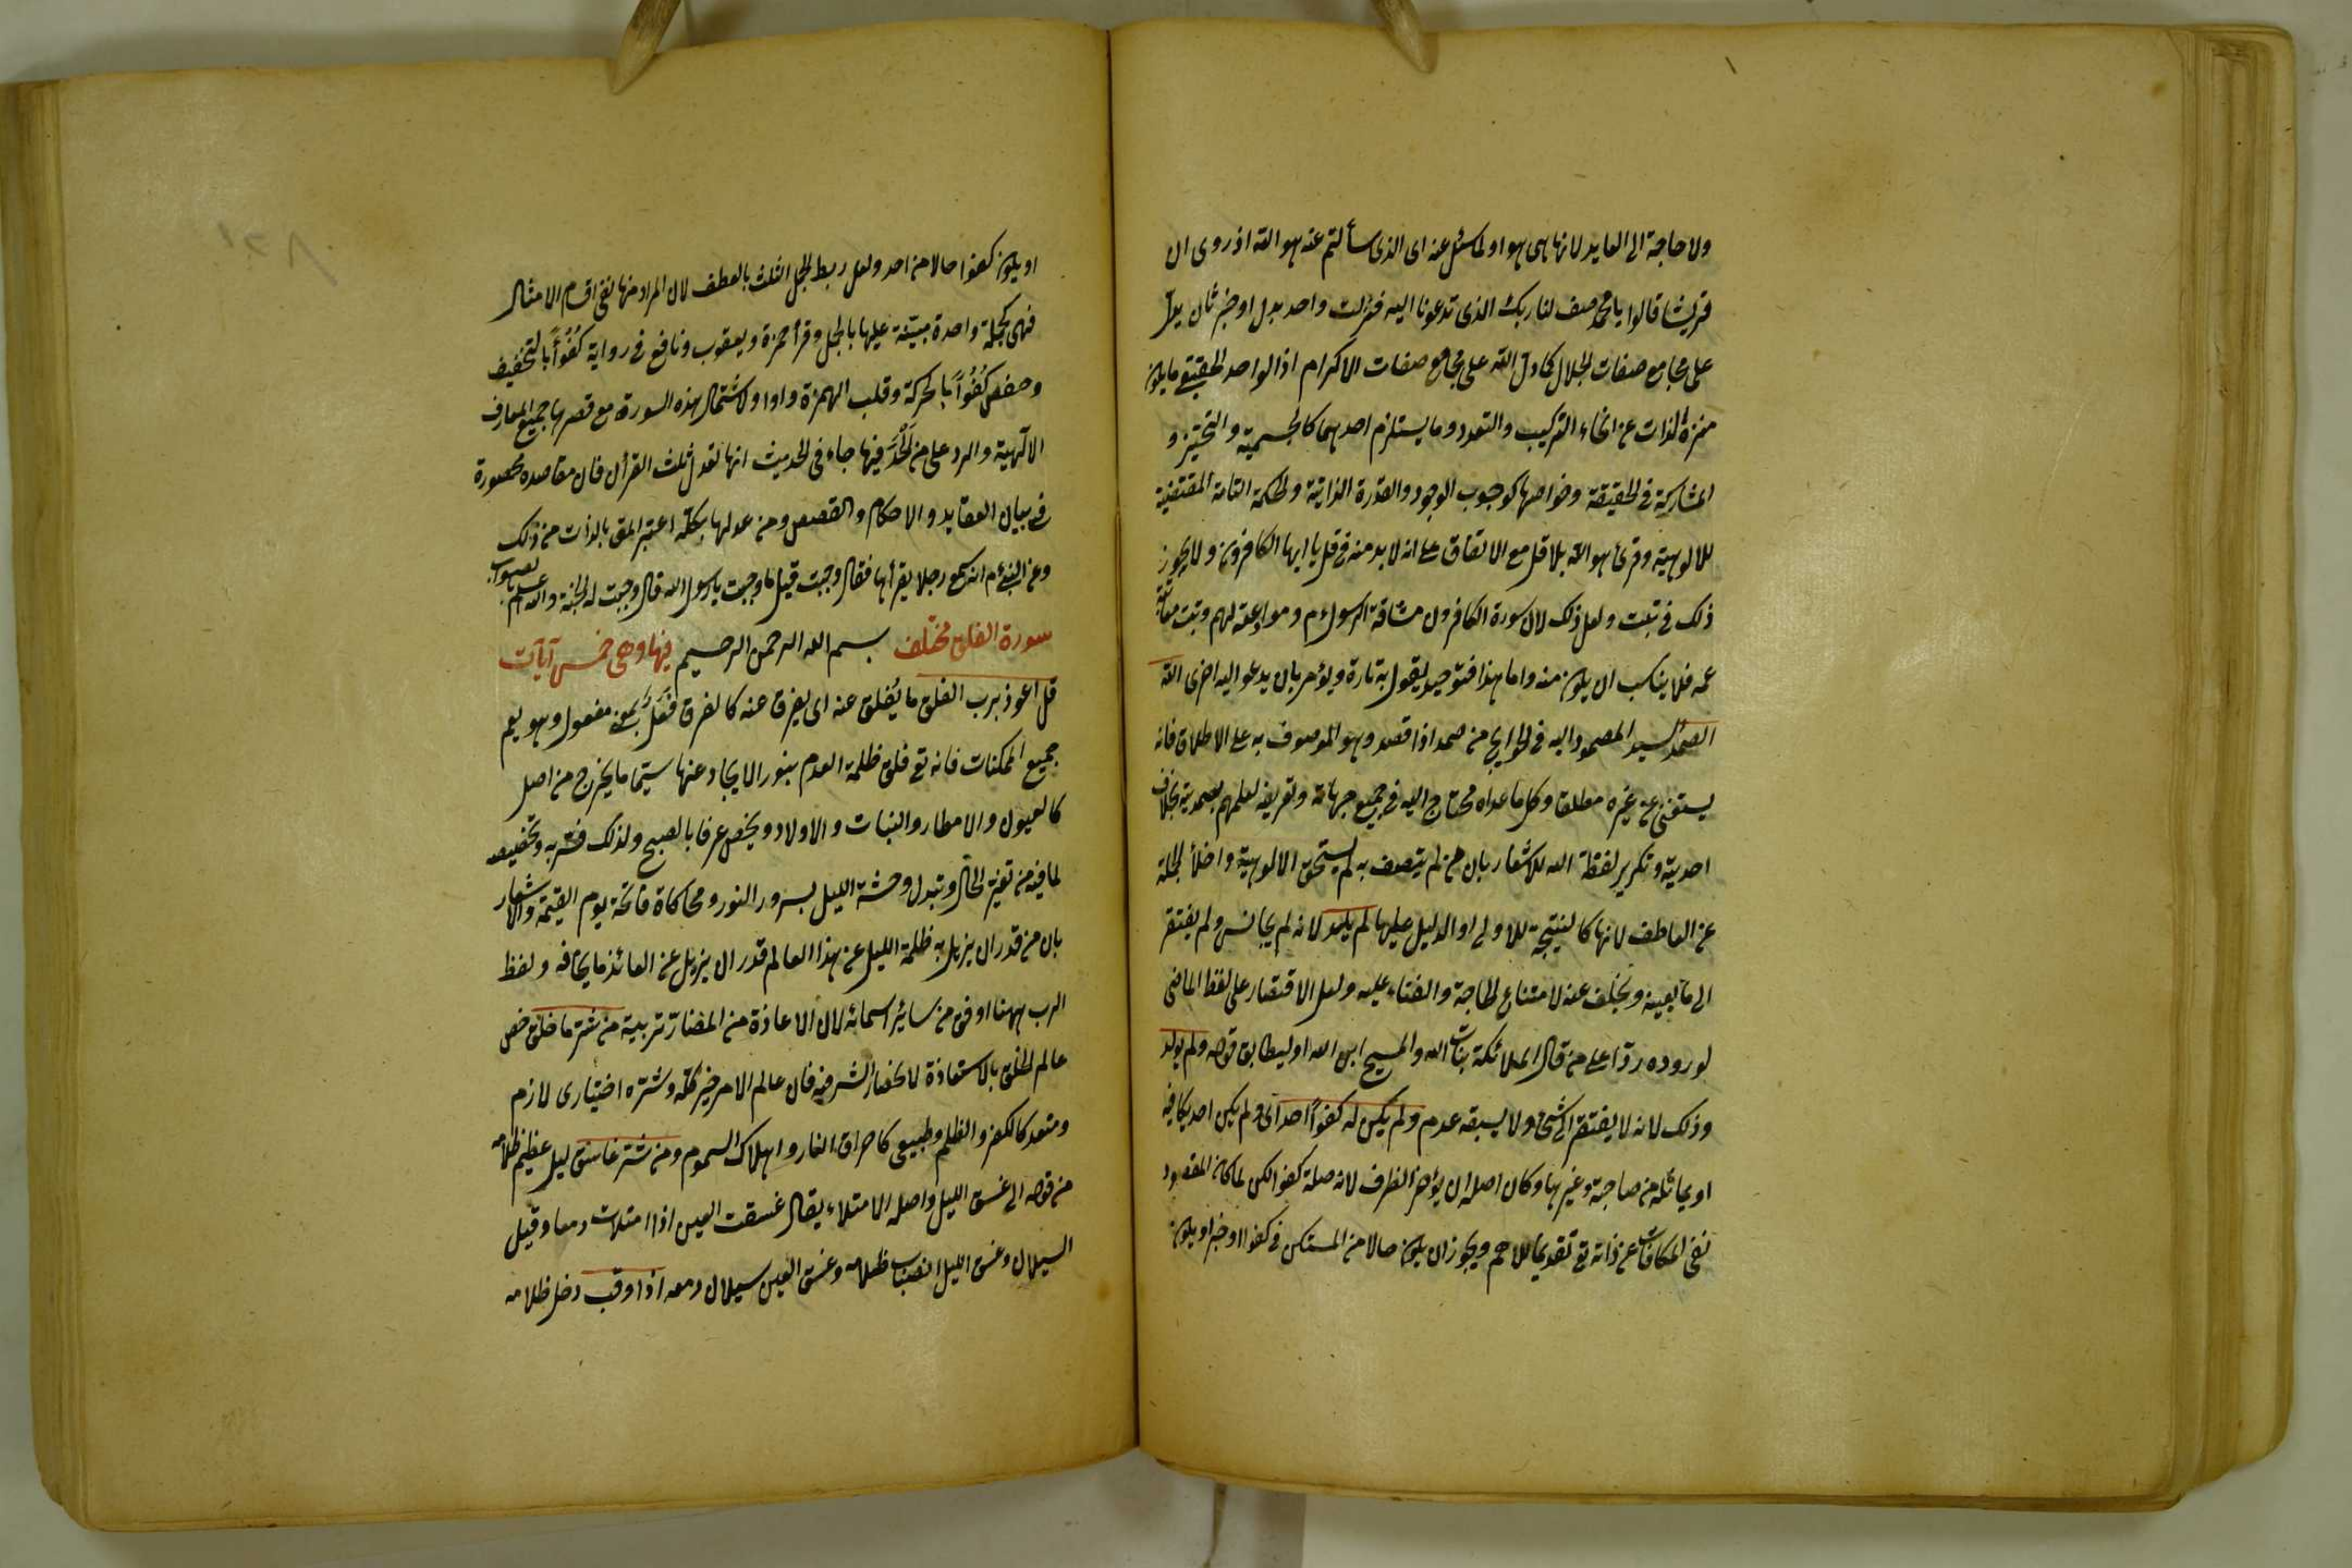 ولا حاجة الى العايد لانها هى هو او لما سئل عنه اى الذى سألتم عنه هو الله اذ روى ان
قريشا قالوا يا محمد صف لنا ربك الذى تدعونا اليه فنزلت واحد بدل او خبر ثان يدل
على مجامع صفات الجلال كما دل الله على مجامع صفات الاكرام اذ الواحد الحقيقى ما يكون
منزه الذات عن انحاء التركيب والتعدد وما يستلزم احدهما كالجسمية والتحيز و
المشاركة فى الحقيقة وخواصها كوجوب الوجود والقدرة الذاتية والحكمة التامة المقتضية
للالوهية وقرئ هو الله بلا قل مع الاتفاق على انه لا بد منه فى قل يا ايها الكافرون ولا يجوز
ذلك فى تبت ولعل ذلك لان سورة الكافرون مشاقة الرسول ءم وموادعته لهم وتبت معاتبة
عمه فلا يناسب ان يكون منه واما هذا فتوحيد يقول به تارة ويؤمر بان يدعو اليه اخرى الله
الصمد السيد المصمود اليه فى الحوايج من صمد اذا قصد وهو الموصوف به على الاطلاق فانه
يستغنى عن غيره مطلقا وكل ما عداه محتاج اليه فى جميع جهاته وتعريفه لعلمهم بصمديته بخلاف
احديته وتكرير لفظة الله للاشعار بان من لم يتصف به لم يستحق الالوهية واخلاء الجملة
عن العاطف لانها كالنتيجة للاولى او الدليل عليها لم يلد لانه لم يجانس ولم يفتقر
الى ما يعينه ويخلف عنه لامتناع الحاجة والفناء عليه ولعل الاقتصار على لفظ الماضى
لوروده ردا على من قال الملائكة بنات الله والمسيح ابن الله او ليطابق قوله ولم يولد
وذلك لانه لا يفتقر الى شئ ولا يسبقه عدم ولم يكن له كفوا احد اى ولم يكن احد يكافيه
او يماثله من صاحبة وغيرها وكان اصله ان يؤخر الظرف لانه صلة كفوا لكن لما كان المقصود
نفى المكافات عن ذاته تع تقديما للاهم ويجوز ان يكون حالا من المستكن فى كفوا او خبرا ويكون
او يكون كفوا حالا من احد ولعل ربط الجمل الثلث بالعطف لان المراد منها نفى اقسام الامثال
فهى كجملة واحدة مبينة عليها بالجمل وقرأ حمزة ويعقوب ونافع فى رواية كُفْؤًا بالتخفيف
وحفص كُفُوًا بالحركة وقلب الهمزة واوا ولاشتمال هذه السورة مع قصرها جميع المعارف
الالهية والرد على من الحد فيها جاء فى الحديث انها تعدل ثلث القرأن فان مقاصده محصورة
فى بيان العقايد والاحكام والقصص ومن عدلها بكله اعتبر المق بالذات من ذلك
وعن النبى ءم انه سمع رجلا يقرأها فقال وجبت قيل ما وجبت يا رسول الله قال وجبت له الجنة والله اعلم بالصواب
سورة الفلق مختلف بسم الله الرحمن الرحيم فيها وهى خمس آيات
قل اعوذ برب الفلق ما يُفلق عنه اى يفرق عنه كالفرق فَعَلٌ بمعنى مفعول وهو يعم
جميع الممكنات فانه تع فلق ظلمة العدم بنور الايجاد عنها سيما ما يخرج من اصل
كالعيون والامطار والنبات والاولاد ويختص عرفا بالصبح ولذلك فسر به وتخصيصه
لما فيه من تغير الحال وتبدل وحشة الليل بسرور النور ومحاكاة فاتحة يوم القيمة والاشعار
بان من قدر ان يزيل به ظلمة الليل عن هذا العالم قدر ان يزيل عن العائذ ما يخافه ولفظ
الرب ههنا اوفق من سائر اسمائه لان الاعاذة من المضار تربية من شر ما خلق خص
عالم الخلق بالاستعاذة لانحصار الشر فيه فان عالم الامر خير كله وشره اختيارى لازم
ومتعد كالكفر والظلم وطبيعى كاحراق النار واهلاك السموم ومن شر غاسق ليل عظيم ظلامه
من قوله الى غسق الليل واصله الامتلاء يقال غسقت العين اذا امتلات دمعا وقيل
السيلان وغسق الليل انصباب ظلامه وغسق العين سيلان دمعه اذا وقب دخل ظلامه